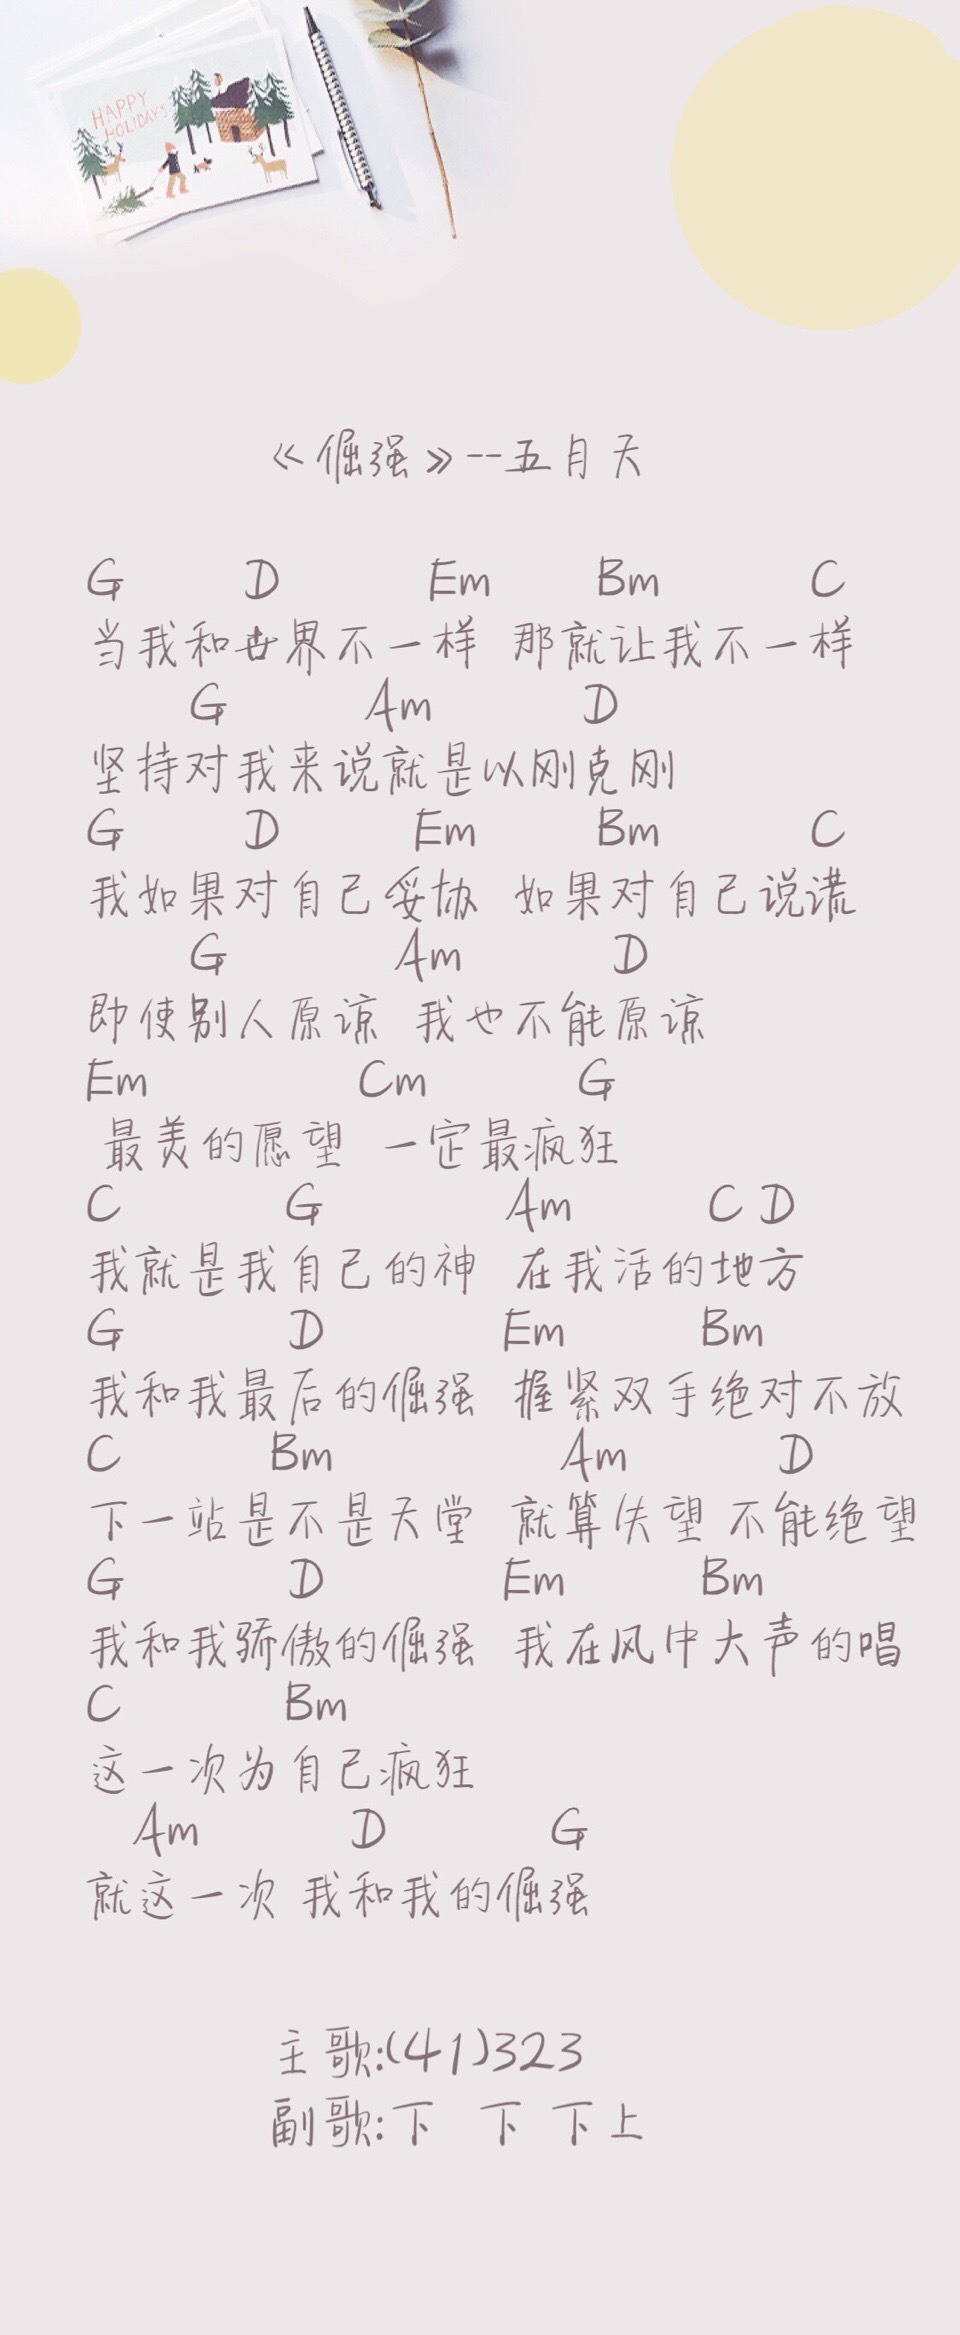 HAPPY
HOLIDAYS
《倔强》--五月天
G D Em Bm C
当我和世界不一样 那就让我不一样
G Am D
坚持对我来说就是以刚克刚
G D Em Bm C
我如果对自己妥协 如果对自己说谎
G Am D
即使别人原谅 我也不能原谅
Em Cm G
最美的愿望 一定最疯狂
C G Am C D
我就是我自己的神 在我活的地方
G D Em Bm
我和我最后的倔强 握紧双手绝对不放
C Bm Am D
下一站是不是天堂 就算失望 不能绝望
G D Em Bm
我和我骄傲的倔强 我在风中大声的唱
C Bm
这一次为自己疯狂
Am D G
就这一次 我和我的倔强
主歌:(41)323
副歌:下 下 下上